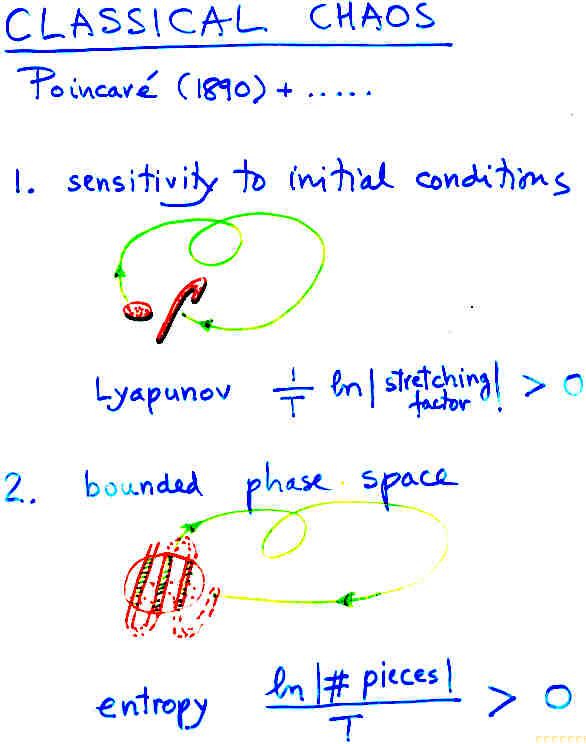 CLASSICAL CHAOS
Poincaré (1890) + .....
1. sensitivity to initial conditions
Lyapunov 1/T ln |stretching factor| > 0
2. bounded phase space
entropy ln |# pieces| / T > 0